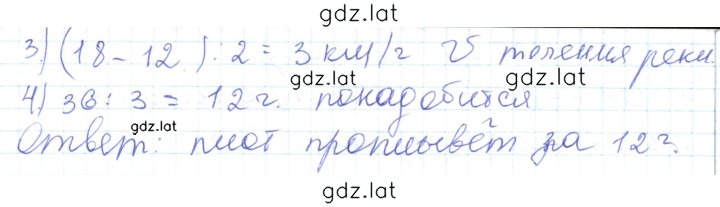 gdz.lat
3) (18 - 12) : 2 = 3 км/г V течения реки
gdz.lat
4) 36 : 3 = 12 г. понадобится
gdz.lat
Ответ: плот проплывёт за 12 г.
gdz.lat